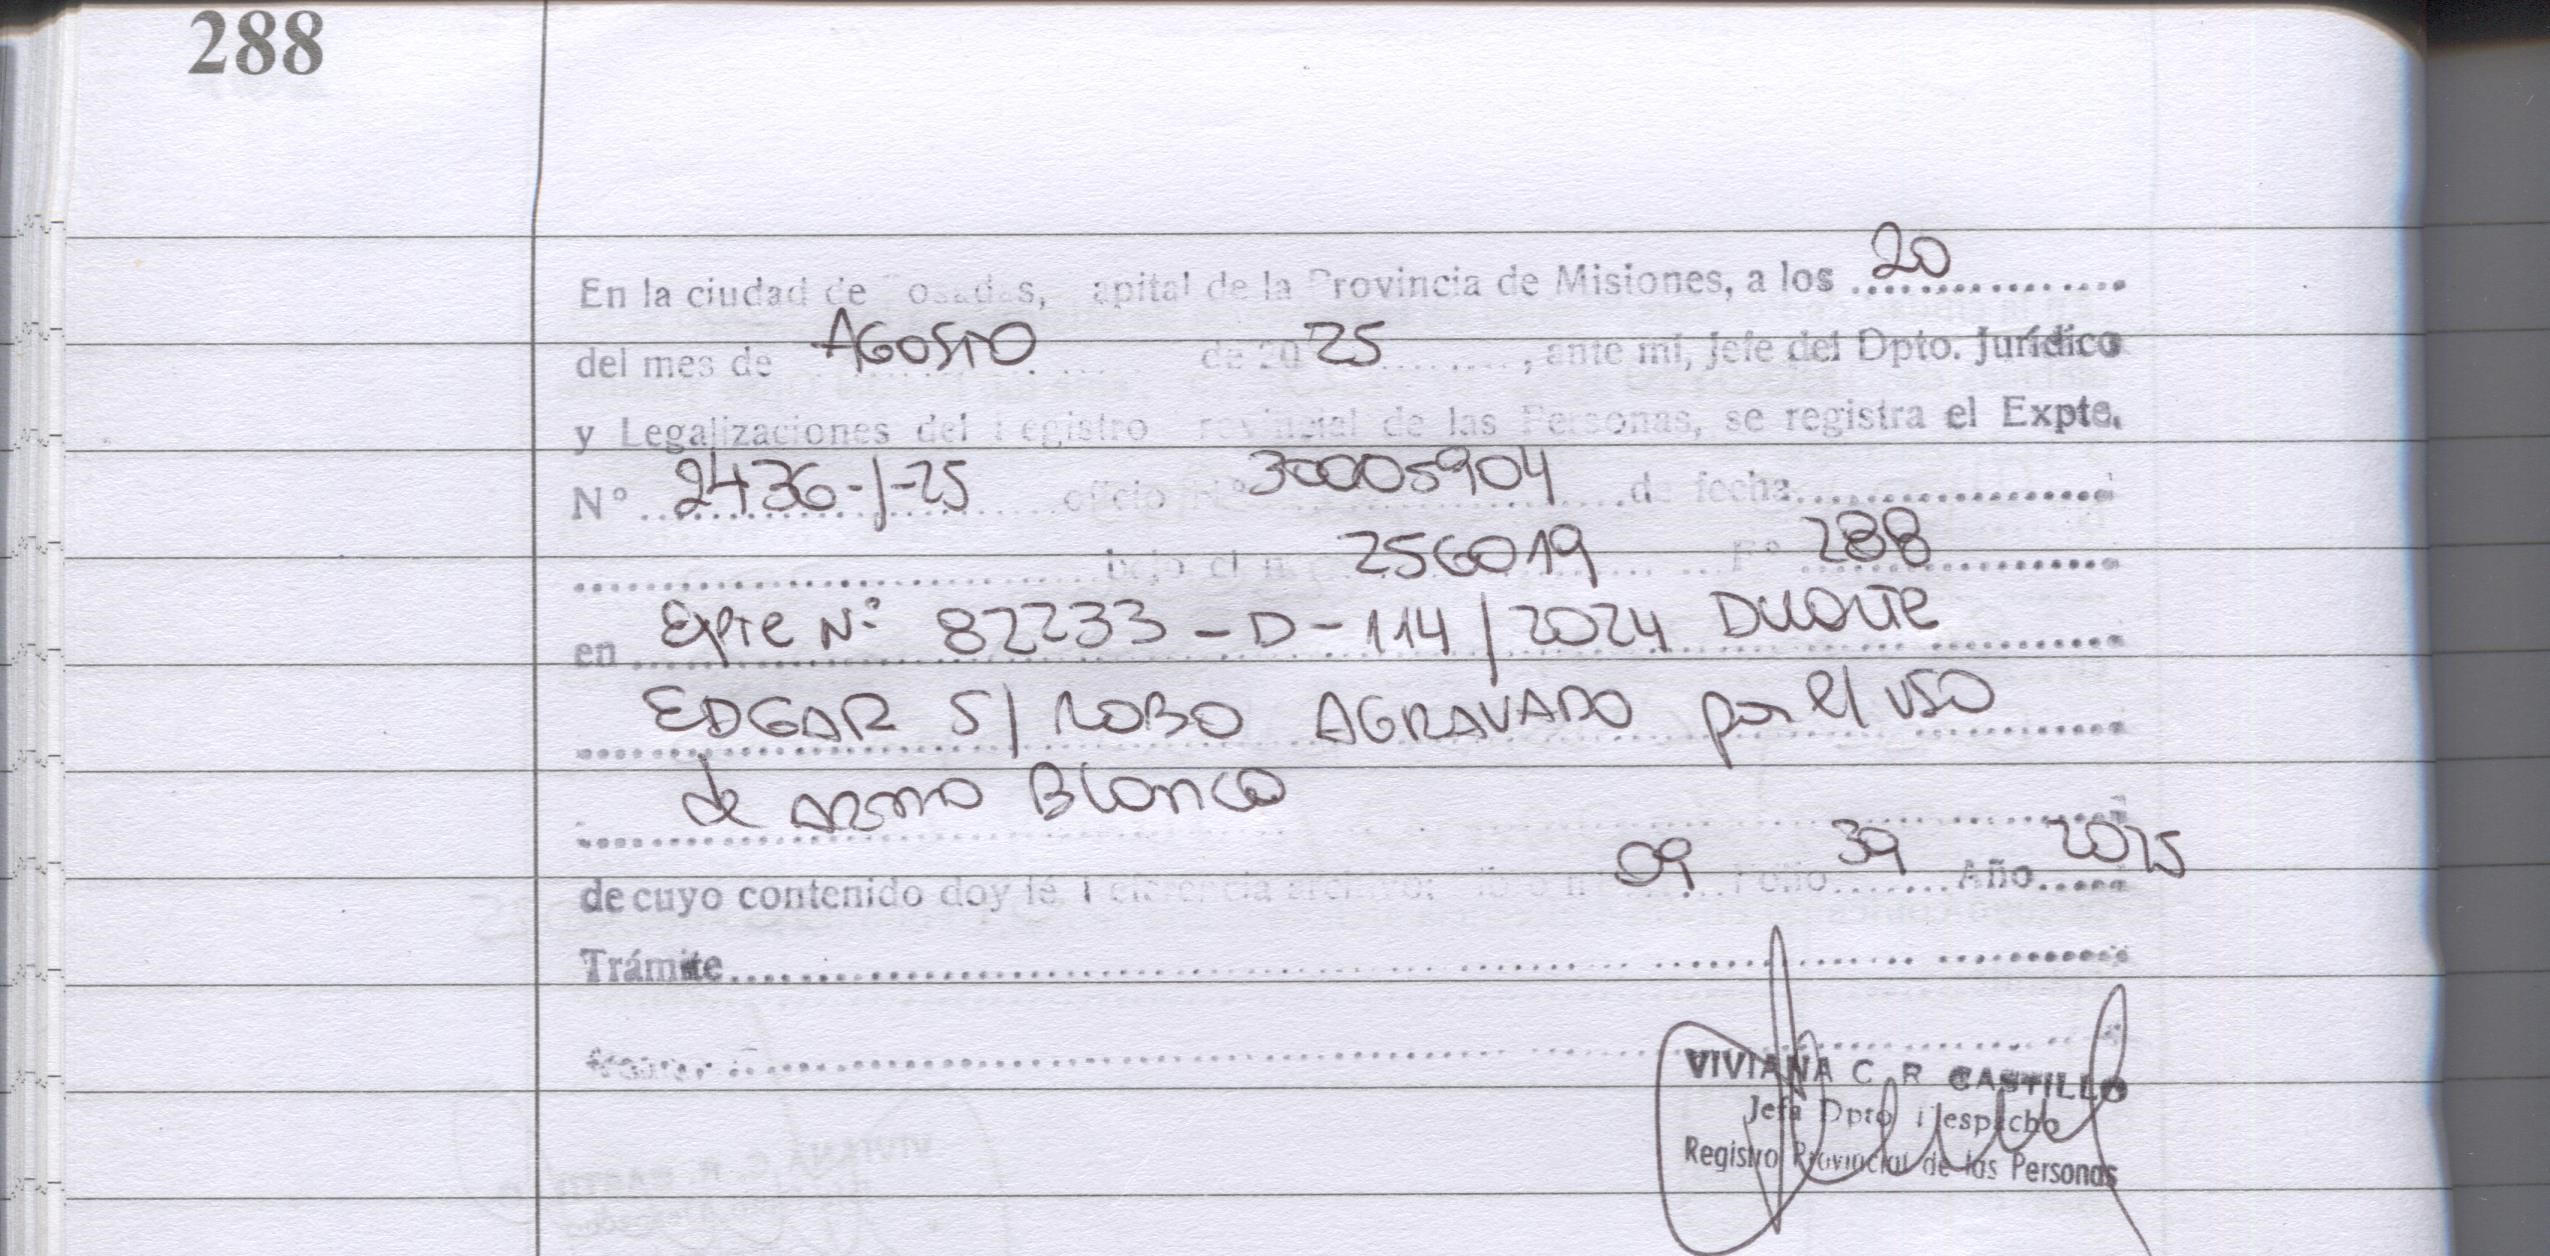 288
En la ciudad de Posadas, Capital de la Provincia de Misiones, a los 20
del mes de AGOSTO de 2025, ante mí, Jefe del Dpto. Jurídico
y Legalizaciones del Registro Provincial de las Personas, se registra el Expte.
Nº 2436-/-25 oficio Nº 30005904 de fecha
bajo el 256019 Fº 288
en Expte Nº 82233-D-114/2024 DUARTE
EDGAR S/ ROBO AGRAVADO por el uso
de ARMA Blanca
de cuyo contenido doy fé. Referencia archivo: libro 09 Folio 39 Año 2025
Trámite
VIVIANA C. R. CASTILLO
Jefa Dpto Despacho
Registro Provincial de las Personas